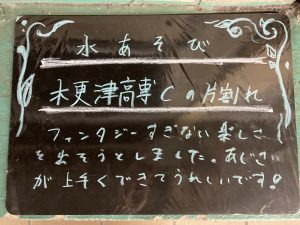 水あそび
木更津高専Cの片割れ
ファンタジーすぎない楽しさ
を出そうとしました。あじさい
が上手くできてうれしいです!